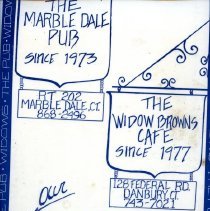 THE
MARBLE DALE
PUB
SINCE 1973
RT 202
MARBLE DALE, CT.
868-2496
THE
WIDOW BROWNS
CAFE
SINCE 1977
128 FEDERAL RD.
DANBURY CT
743-7021
our
THE PUB · WIDOWS · THE PUB · WIDOW